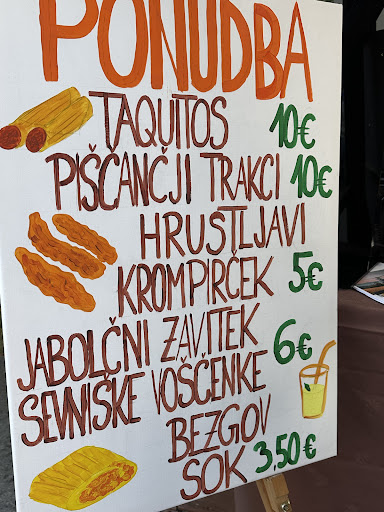 PONUDBA
TAQUITOS 10€
PIŠČANČJI TRAKCI 10€
HRUSTLJAVI
KROMPIRČEK 5€
JABOLČNI ZAVITEK 6€
SEVNIŠKE VOŠČENKE
BEZGOV
SOK 3,50€